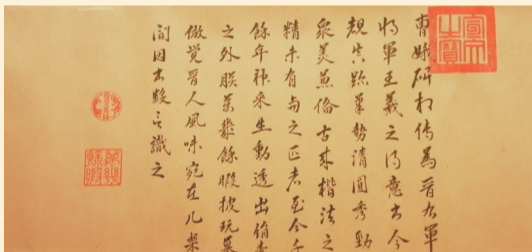 曹娥碑相传為晋右軍
将軍王羲之得意书今
覩真跡筆勢清圓秀勁
衆美兼備古来楷法之
精未有与之匹者至今千
餘年神采生動透出绢素
之外朕萬幾餘暇披玩摹
倣覺晋人風味宛在几案
間因书數言識之